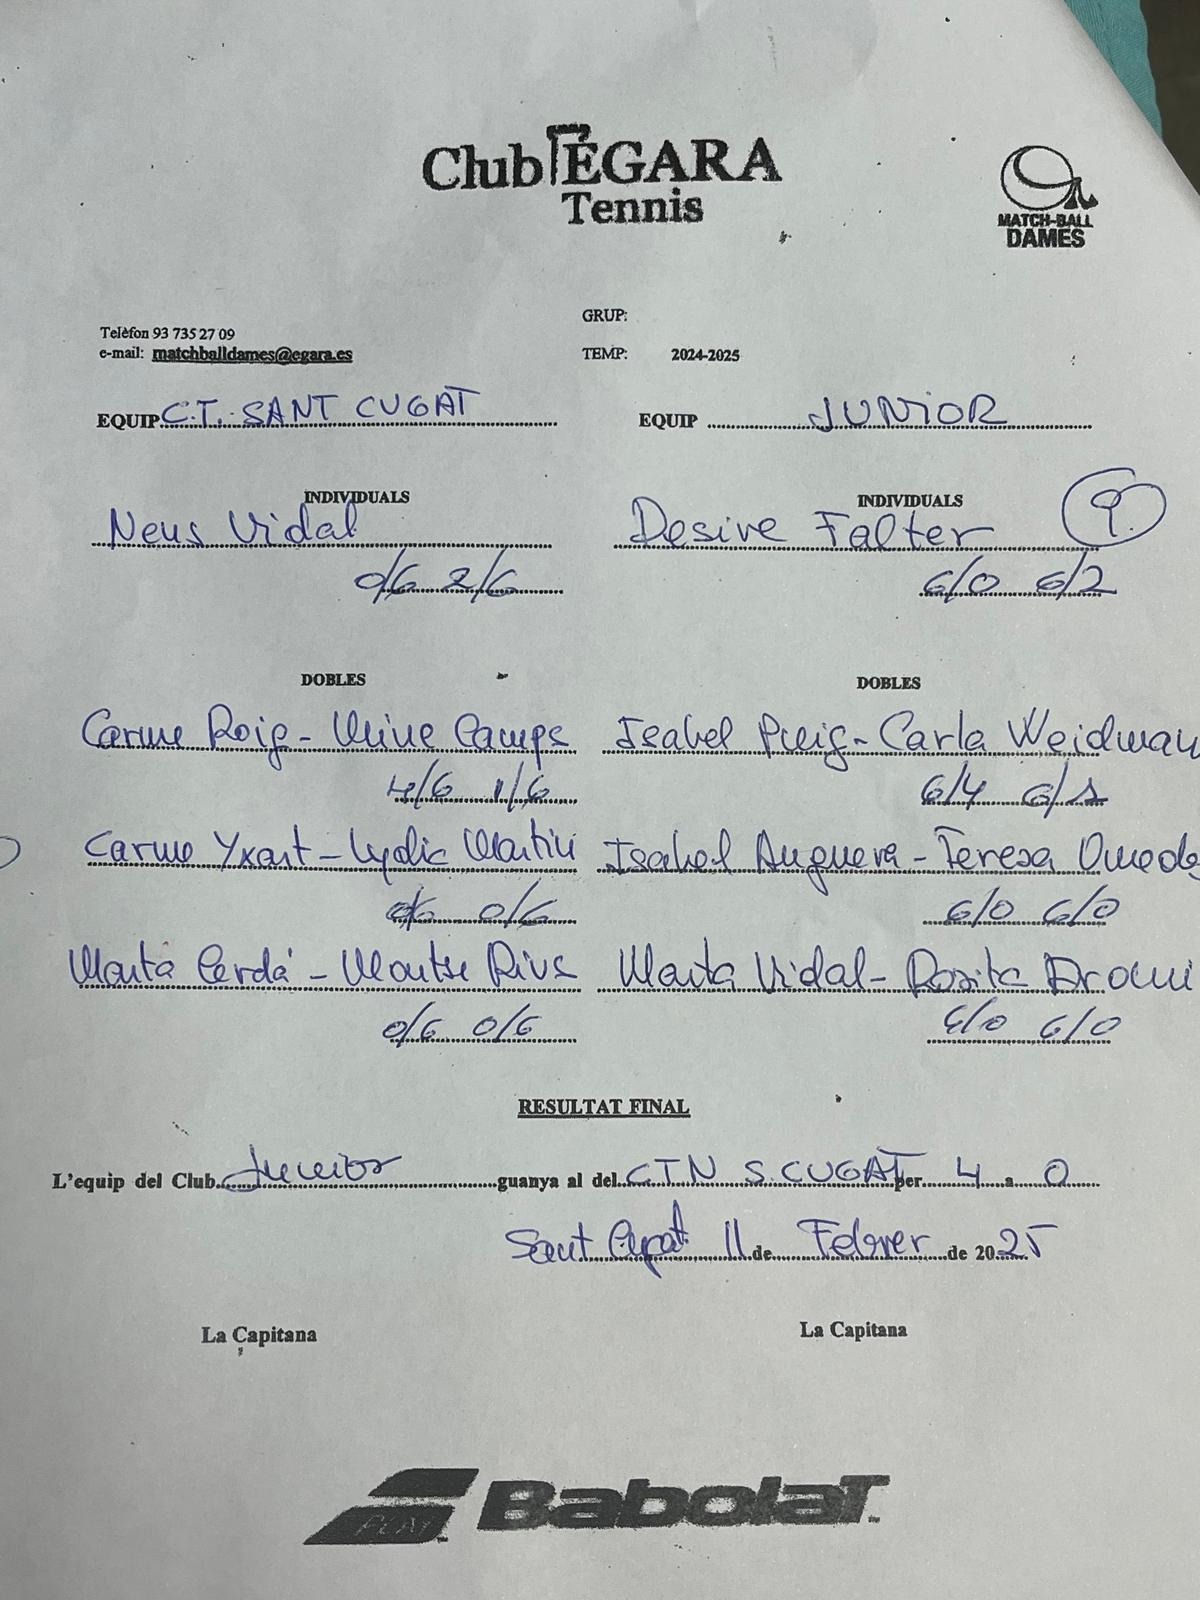 Club EGARA
Tennis
MATCH-BALL
DAMES
GRUP:
Telèfon 93 735 27 09
e-mail: matchballdames@egara.es
TEMP: 2024-2025
EQUIP C.T. SANT CUGAT
EQUIP JUNIOR
INDIVIDUALS
INDIVIDUALS
9
Neus Vidal
Desive Falter
0/6 2/6
6/0 6/2
DOBLES
DOBLES
Carme Roig - Camps
Isabel Puig - Carla Weidman
4/6 1/6
6/4 6/1
Carme Yxart - Lydia Martin
Isabel Anguera - Teresa
0/6 0/6
6/0 6/0
Marta Cerdá - Montse Rius
Marta Vidal - Rosita Aromi
0/6 0/6
6/0 6/0
RESULTAT FINAL
L'equip del Club Junior guanya al del CTN S. CUGAT per 4 a 0
Sant Cugat 11 de Febrer de 2025
La Capitana
La Capitana
PLAY
BabolaT